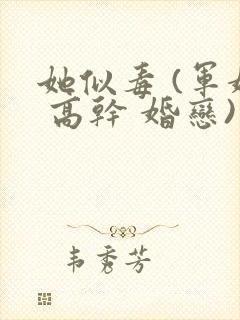 她似毒(軍婚
高幹 婚戀)
韦秀芳